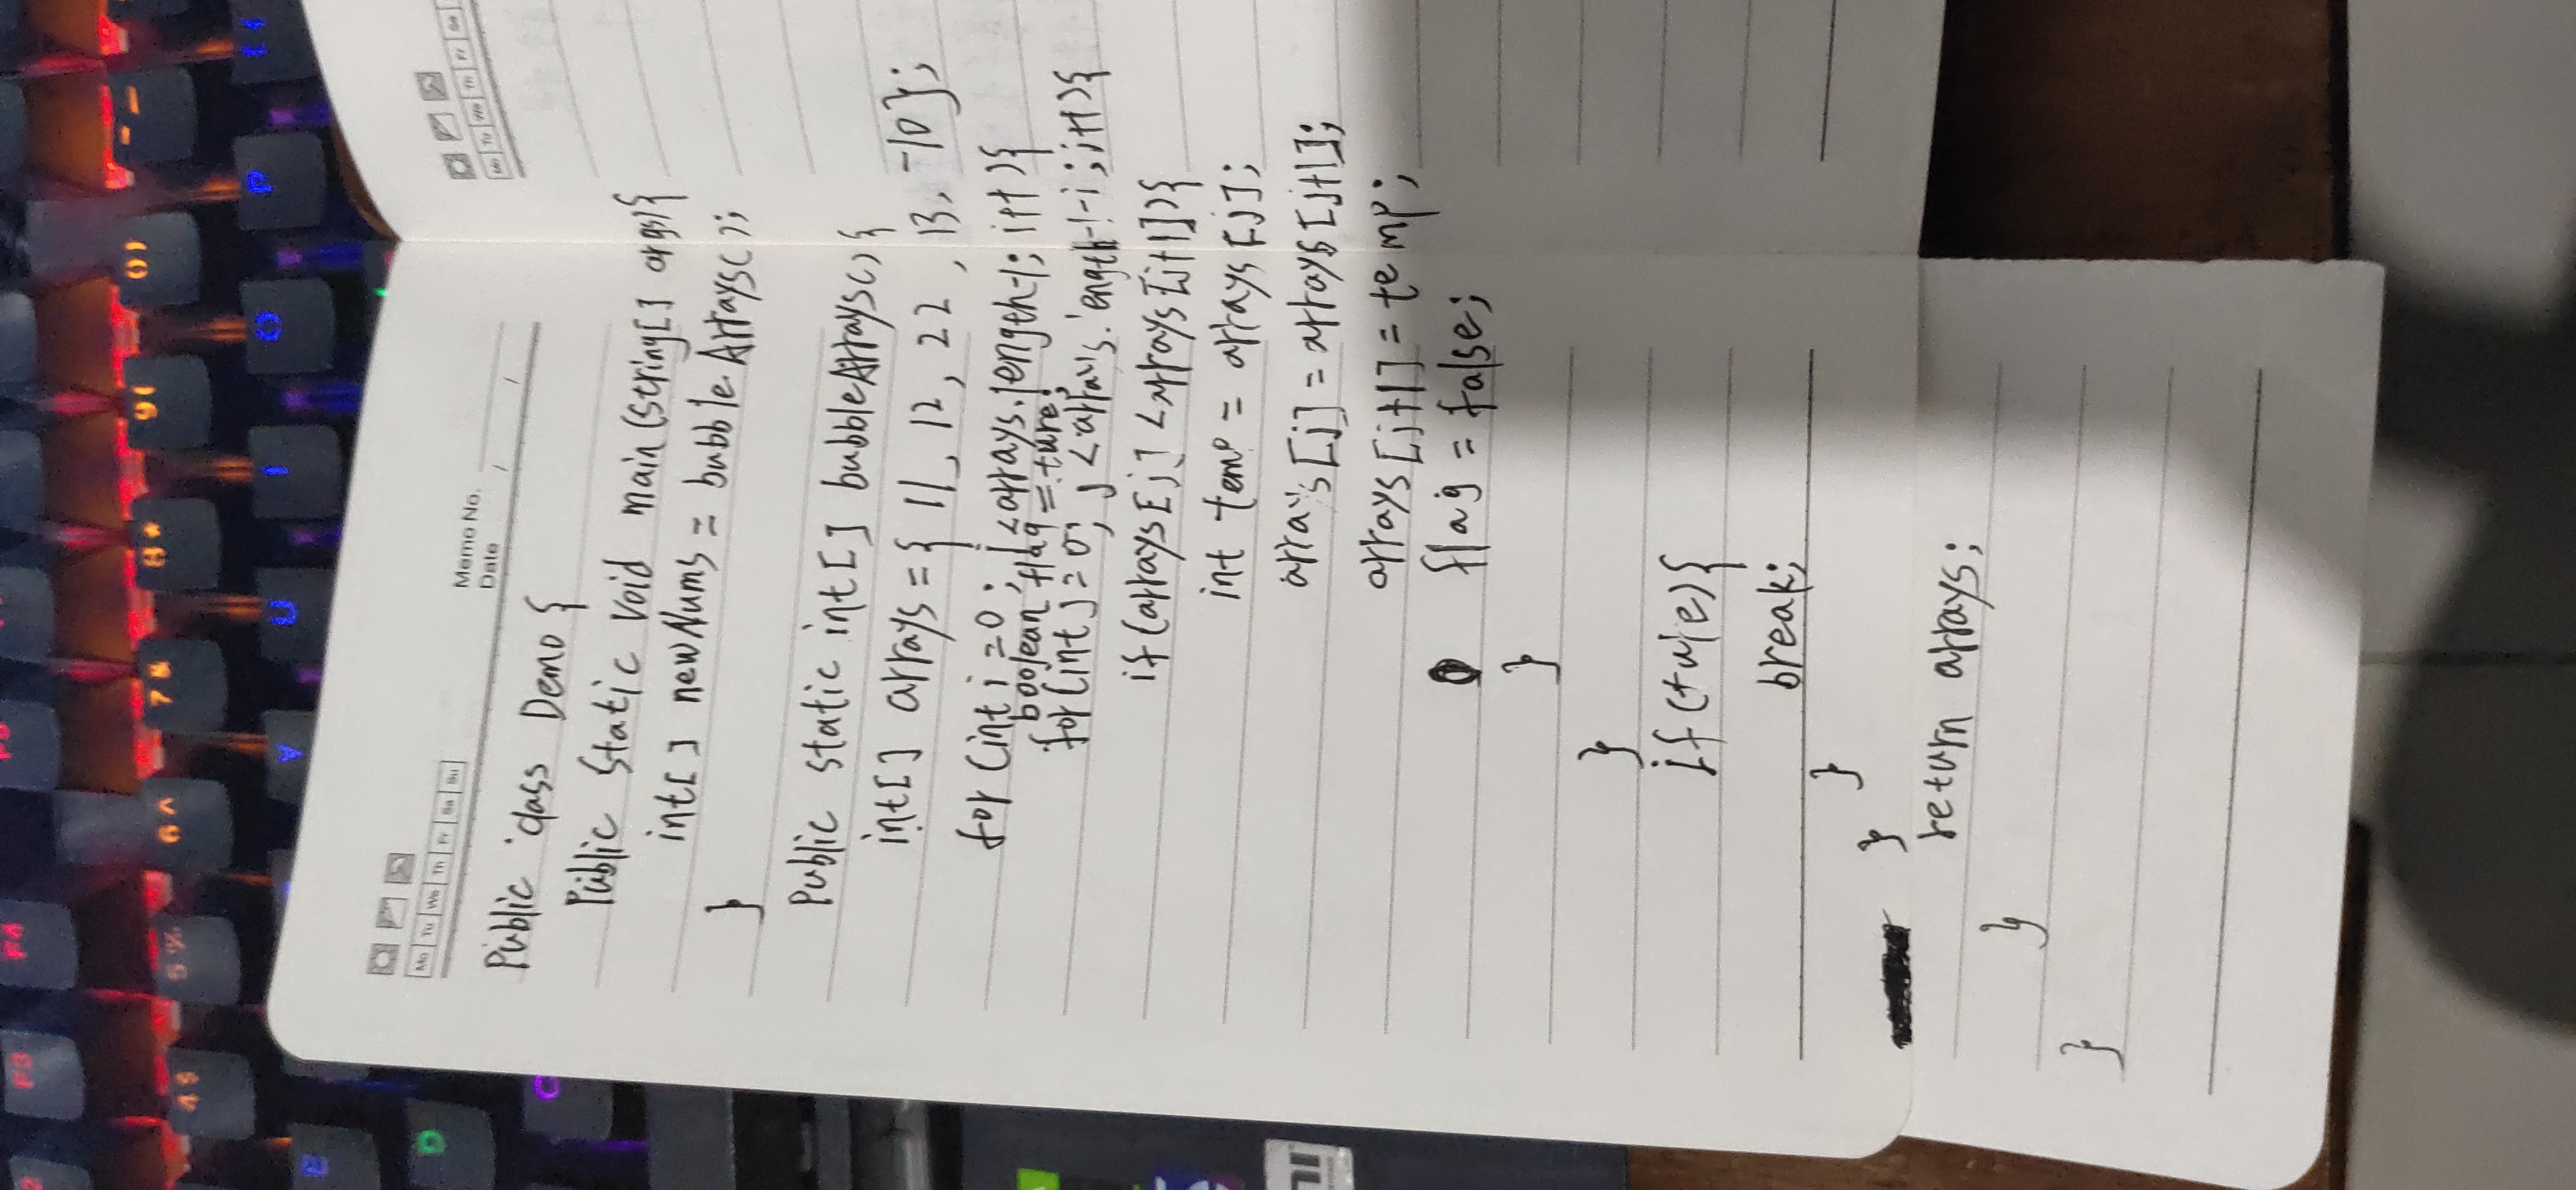 F3 F4
4$ 5% 6^ 7& 8* 9( 0) -_
Y U I O P
D
C
Mo Tu We Th Fr Sa Su
Memo No.
Date / /
Mo Tu We Th Fr Sa
Public class Demo {
Public static void main (String[] args){
int[] newNums = bubbleArrays();
}
Public static int[] bubbleArrays(){
int[] arrays = { 11, 12, 22, 13, -10};
for (int i=0; i<arrays.length-1; i++){
boolean flag = ture;
for(int j=0; j<arrays.length-1-i; j++){
if (arrays[j] <arrays[j+1]){
int temp = arrays[j];
arrays[j] = arrays[j+1];
arrays[j+1] = temp;
flag = false;
}
}
if(ture){
break;
}
}
return arrays;
}
}